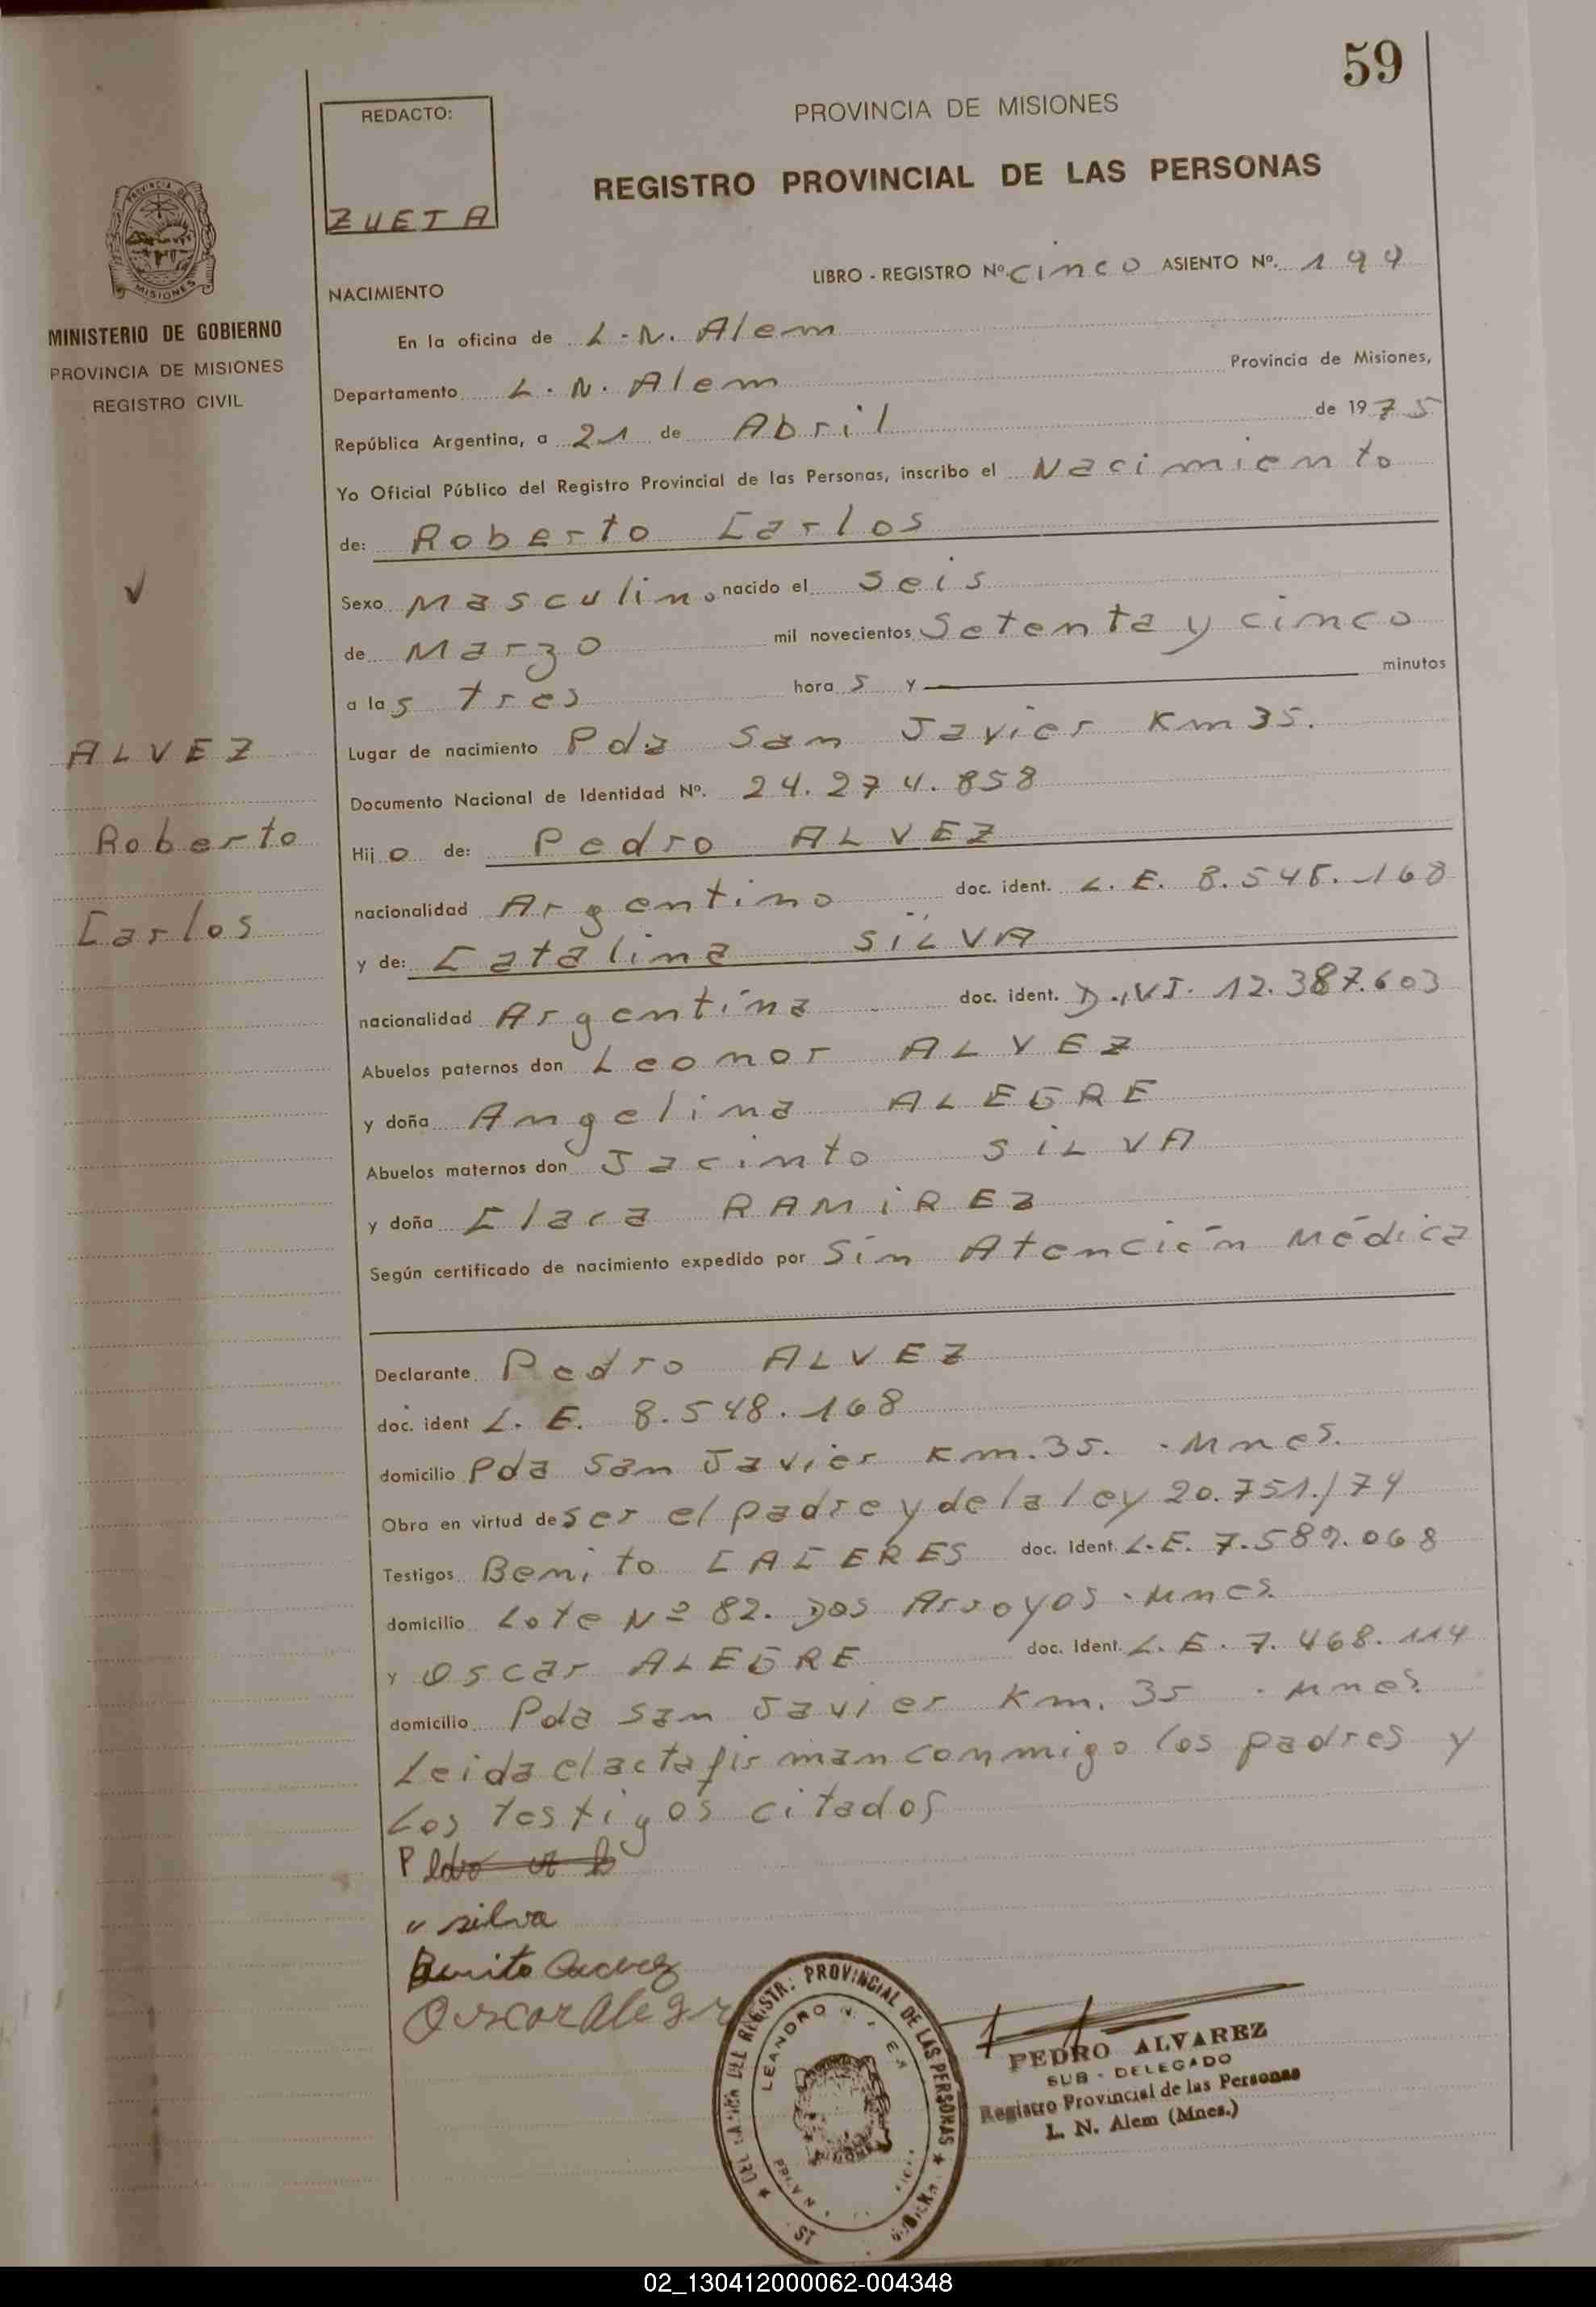 59
REDACTO:
ZUETA
PROVINCIA DE MISIONES
REGISTRO PROVINCIAL DE LAS PERSONAS
PROVINCIA DE
MISIONES
MINISTERIO DE GOBIERNO
PROVINCIA DE MISIONES
REGISTRO CIVIL
LIBRO - REGISTRO Nº. cinco ASIENTO Nº. 199
NACIMIENTO
En la oficina de L. N. Alem
Departamento L. N. Alem Provincia de Misiones,
República Argentina, a 21 de Abril de 1975
Yo Oficial Público del Registro Provincial de las Personas, inscribo el Nacimiento
de: Roberto Carlos
Sexo Masculino nacido el Seis
de Marzo mil novecientos Setenta y cinco
a las tres horas y minutos
Lugar de nacimiento Pda San Javier Km 35.
ALVEZ
Roberto
Carlos
Documento Nacional de Identidad Nº. 24.274.858
Hijo de: Pedro ALVEZ
nacionalidad Argentino doc. ident. L. E. 8.548.168
y de: Catalina SiLVA
nacionalidad Argentina doc. ident. 12.387.603
Abuelos paternos don Leonor ALVEZ
y doña Angelina ALEGRE
Abuelos maternos don Jacinto SiLVA
y doña Clara RAMiREZ
Según certificado de nacimiento expedido por Sin Atención Médica
Declarante Pedro ALVEZ
doc. ident L. E. 8.548.168
domicilio Pda San Javier Km. 35. - Mnes.
Obra en virtud de ser el padre y de la ley 20.751./74
Testigos Benito CACERES doc. Ident. L.E. 7.589.068
domicilio Lote Nº 82. Dos Arroyos - Mnes.
y Oscar ALEGRE doc. Ident. L. E. 7.468.114
domicilio Pda San Javier Km. 35 - Mnes.
Leida el acta firman conmigo los padres y
los testigos citados
silva
Benito
Oscar Alegr
REGISTR. PROVINCIAL DE LAS PERSONAS
LEANDRO N.
PEDRO ALVAREZ
SUB - DELEGADO
Registro Provincial de las Personas
L. N. Alem (Mnes.)
02_130412000062-004348